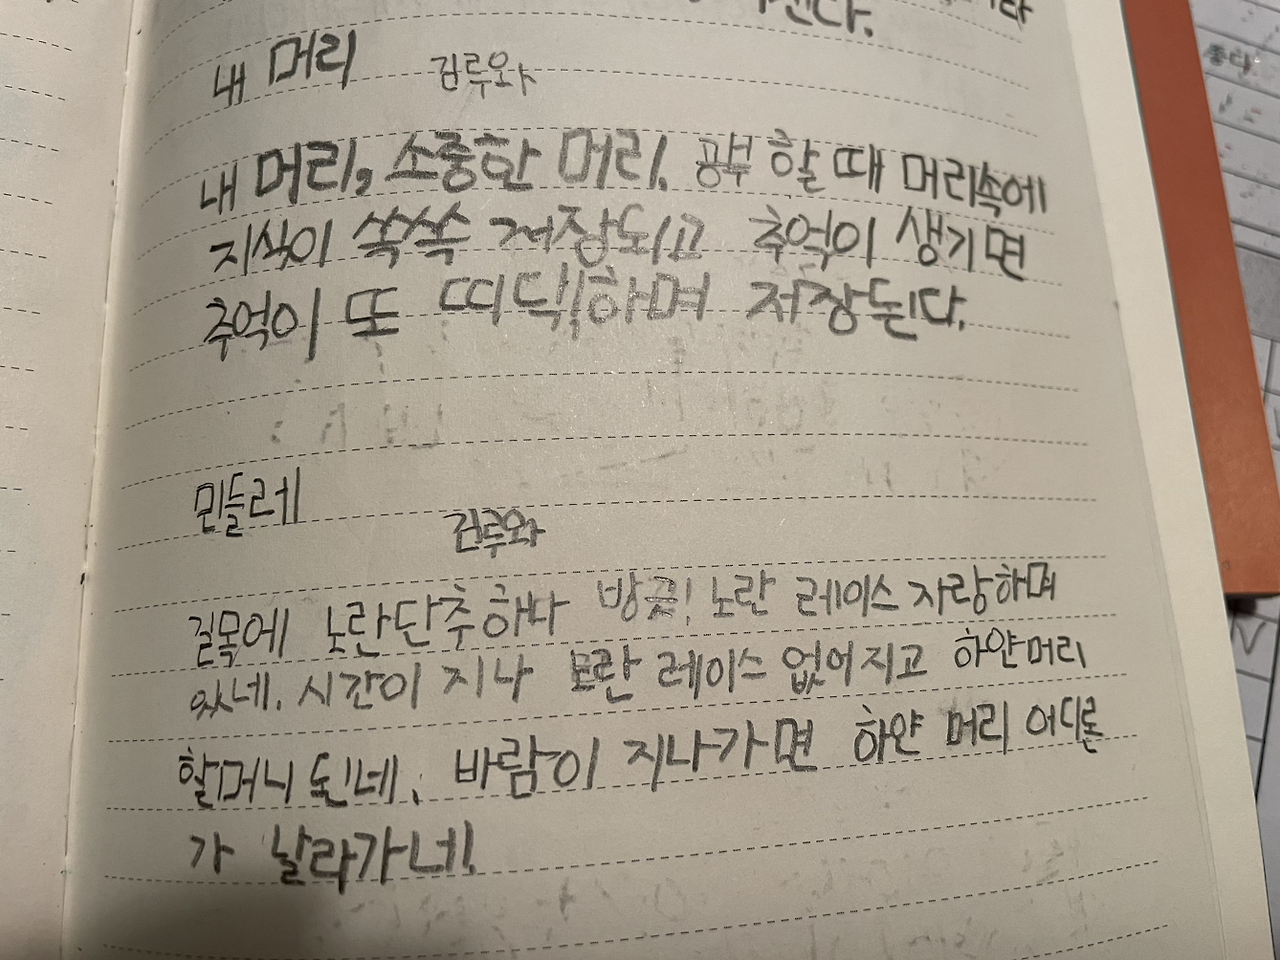 내 머리 김루와
내 머리, 소중한 머리. 공부 할 때 머리속에
지식이 쏙쏙쏙 저장되고 추억이 생기면
추억이 또 띠딕!하며 저장된다.
민들레
김루와
길목에 노란단추하나 방긋! 노란 레이스 자랑하며
있네. 시간이 지나 노란 레이스 없어지고 하얀머리
할머니 된네. 바람이 지나가면 하얀 머리 어디론
가 날라가네!